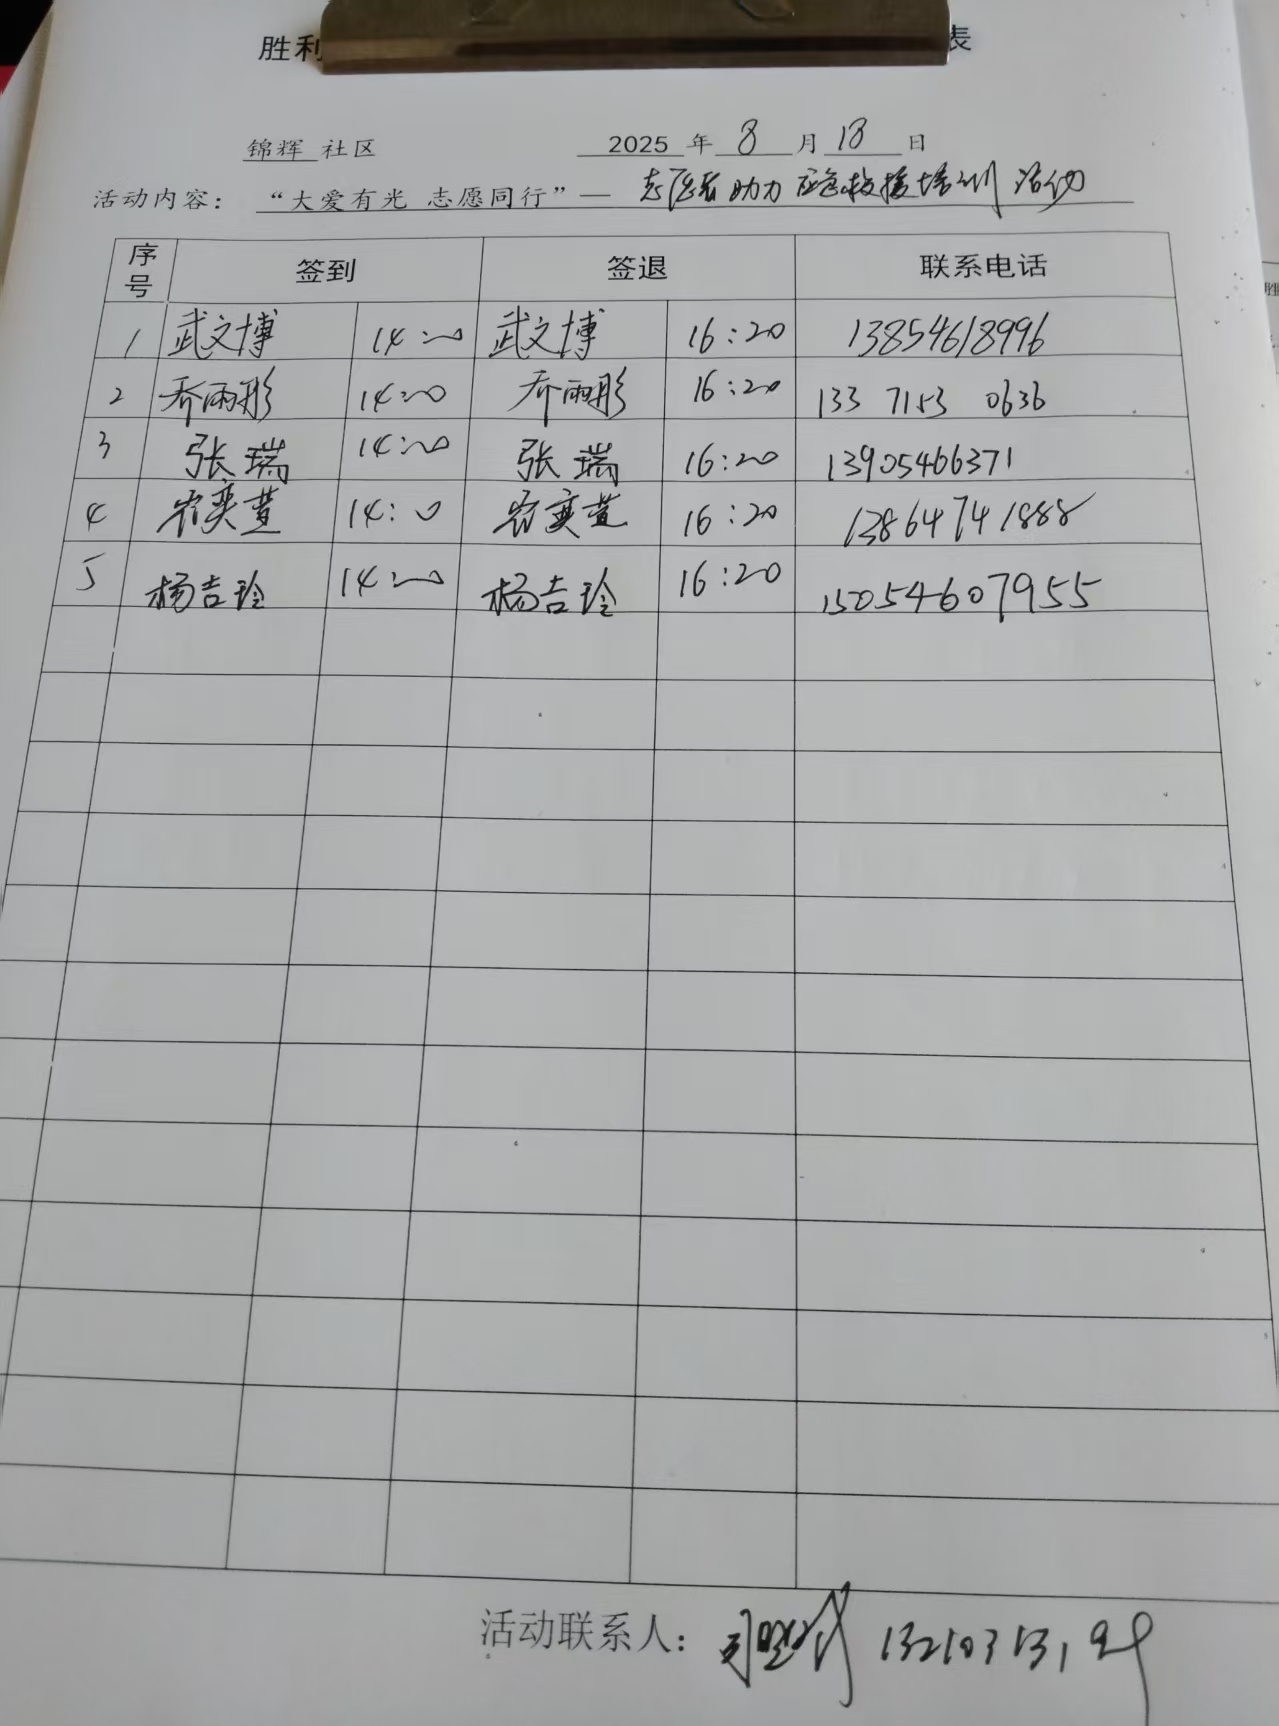 胜利 表
锦辉 社区 2025 年 8 月 18 日
活动内容：“大爱有光 志愿同行”— 志愿者助力应急救援培训活动
序号 签到 签退 联系电话
1 武文博 14:00 武文博 16:20 13854618996
2 乔雨彤 14:00 乔雨彤 16:20 133 7153 0636
3 张瑞 14:00 张瑞 16:20 13905466371
4 奕萱 14:0 奕萱 16:20 13864741888
5 杨吉玲 14:00 杨吉玲 16:20 15054607955
活动联系人：